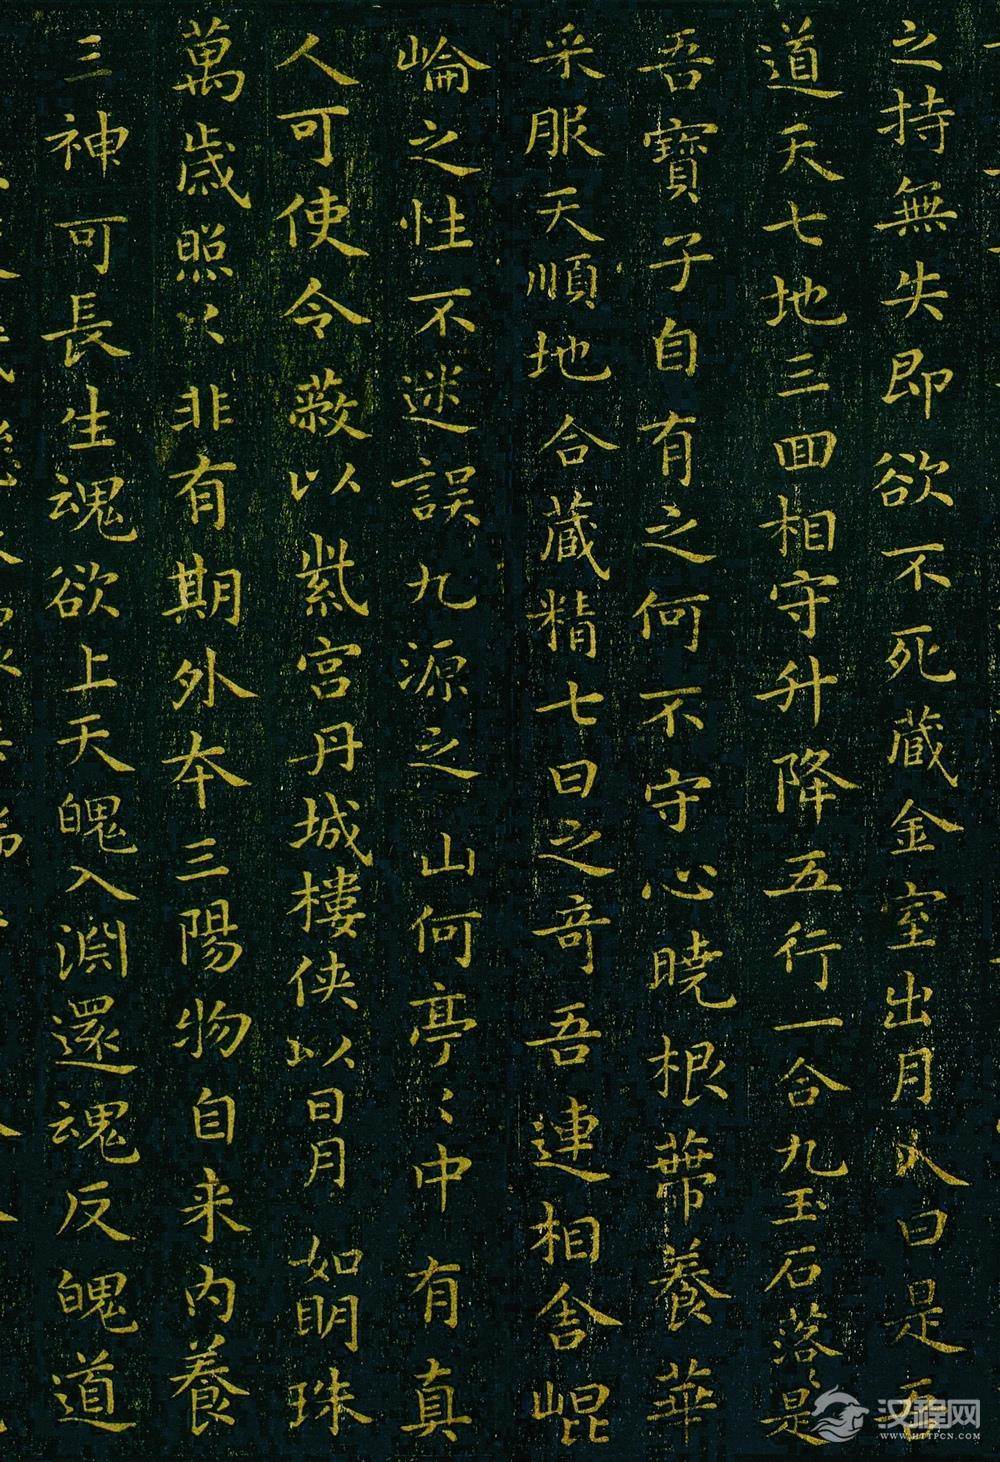 之持無失即欲不死藏金室出月入日是吾
道天七地三回相守升降五行一合九玉石落々是
吾寶子自有之何不守心曉根蔕養華
采服天順地合藏精七日之奇吾連相舎崐
崘之性不迷誤九源之山何亭〻中有真
人可使令蔽以紫宫丹城樓侠以日月如明珠
萬歳照々非有期外夲三陽物自来内養
三神可長生魂欲上天魄入淵還魂反魄道
汉程网
WWW.HTTPCN.COM